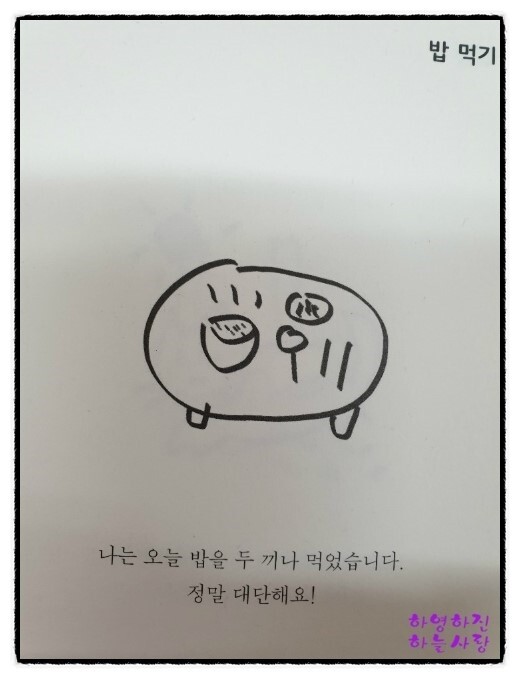 밥 먹기
나는 오늘 밥을 두 끼나 먹었습니다.
정말 대단해요!
하영하진
하늘사랑